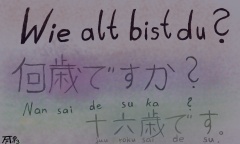 Wie alt bist du?
何歳ですか?
Nan sai de su ka ?
十六歳です。
de su.